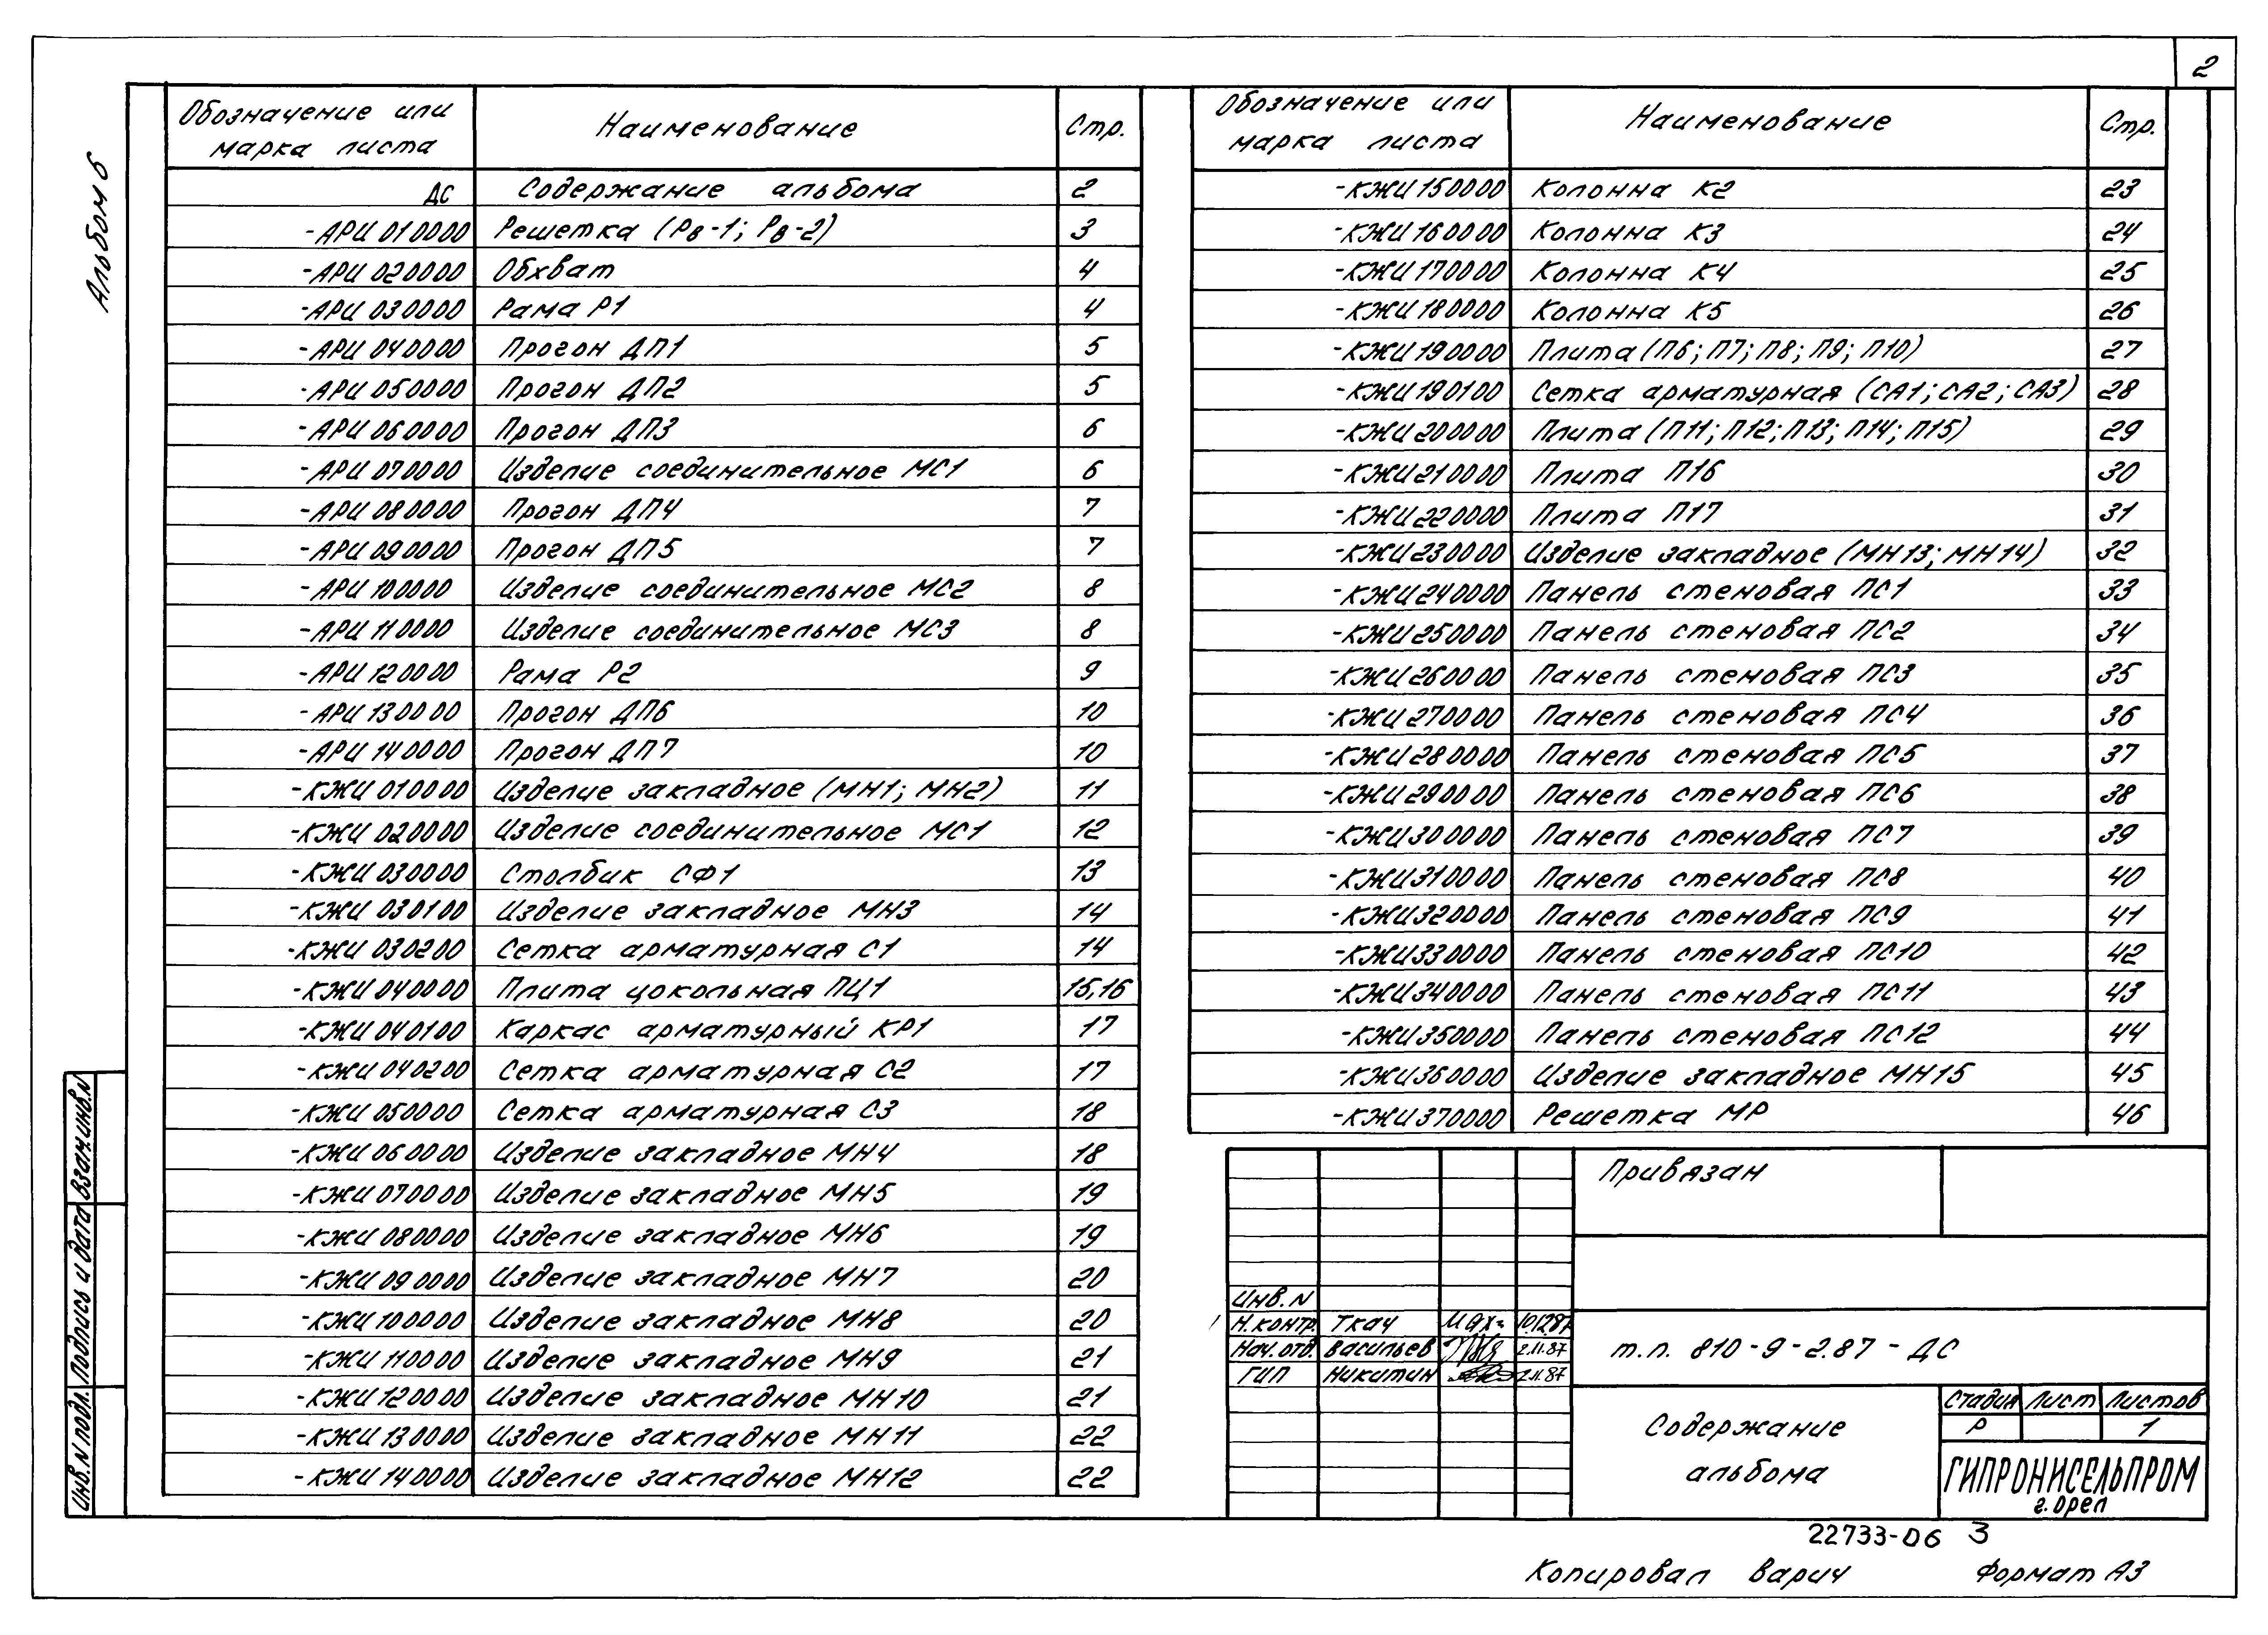 2
Альбом 6
Обозначение или марка листа Наименование Стр.
ДС Содержание альбома 2
-АРИ 010000 Решетка (Рв-1; Рв-2) 3
-АРИ 020000 Обхват 4
-АРИ 030000 Рама Р1 4
-АРИ 040000 Прогон ДП1 5
-АРИ 050000 Прогон ДП2 5
-АРИ 060000 Прогон ДП3 6
-АРИ 070000 Изделие соединительное МС1 6
-АРИ 080000 Прогон ДП4 7
-АРИ 090000 Прогон ДП5 7
-АРИ 100000 Изделие соединительное МС2 8
-АРИ 110000 Изделие соединительное МС3 8
-АРИ 120000 Рама Р2 9
-АРИ 130000 Прогон ДП6 10
-АРИ 140000 Прогон ДП7 10
-КЖИ 010000 Изделие закладное (МН1; МН2) 11
-КЖИ 020000 Изделие соединительное МС1 12
-КЖИ 030000 Столбик СФ1 13
-КЖИ 030100 Изделие закладное МН3 14
-КЖИ 030200 Сетка арматурная С1 14
-КЖИ 040000 Плита цокольная ПЦ1 15,16
-КЖИ 040100 Каркас арматурный КР1 17
-КЖИ 040200 Сетка арматурная С2 17
-КЖИ 050000 Сетка арматурная С3 18
-КЖИ 060000 Изделие закладное МН4 18
-КЖИ 070000 Изделие закладное МН5 19
-КЖИ 080000 Изделие закладное МН6 19
-КЖИ 090000 Изделие закладное МН7 20
-КЖИ 100000 Изделие закладное МН8 20
-КЖИ 110000 Изделие закладное МН9 21
-КЖИ 120000 Изделие закладное МН10 21
-КЖИ 130000 Изделие закладное МН11 22
-КЖИ 140000 Изделие закладное МН12 22
Обозначение или марка листа Наименование Стр.
-КЖИ 150000 Колонна К2 23
-КЖИ 160000 Колонна К3 24
-КЖИ 170000 Колонна К4 25
-КЖИ 180000 Колонна К5 26
-КЖИ 190000 Плита (П6; П7; П8; П9; П10) 27
-КЖИ 190100 Сетка арматурная (СА1; СА2; СА3) 28
-КЖИ 200000 Плита (П11; П12; П13; П14; П15) 29
-КЖИ 210000 Плита П16 30
-КЖИ 220000 Плита П17 31
-КЖИ 230000 Изделие закладное (МН13; МН14) 32
-КЖИ 240000 Панель стеновая ПС1 33
-КЖИ 250000 Панель стеновая ПС2 34
-КЖИ 260000 Панель стеновая ПС3 35
-КЖИ 270000 Панель стеновая ПС4 36
-КЖИ 280000 Панель стеновая ПС5 37
-КЖИ 290000 Панель стеновая ПС6 38
-КЖИ 300000 Панель стеновая ПС7 39
-КЖИ 310000 Панель стеновая ПС8 40
-КЖИ 320000 Панель стеновая ПС9 41
-КЖИ 330000 Панель стеновая ПС10 42
-КЖИ 340000 Панель стеновая ПС11 43
-КЖИ 350000 Панель стеновая ПС12 44
-КЖИ 360000 Изделие закладное МН15 45
-КЖИ 370000 Решетка МР 46
Привязан
Инв. N
Н.контр. Ткач 10.12.87
Нач. отд. Васильев 2.11.87
ГИП Никитин 2.11.87
т.п. 810-9-2.87 - ДС
Содержание
альбома
Стадия Лист Листов
Р 1
ГИПРОНИСЕЛЬПРОМ
г. Орел
Инв. N подл. Подпись и дата Взам.инв.N
22733-06 3
Копировал Варич Формат А3